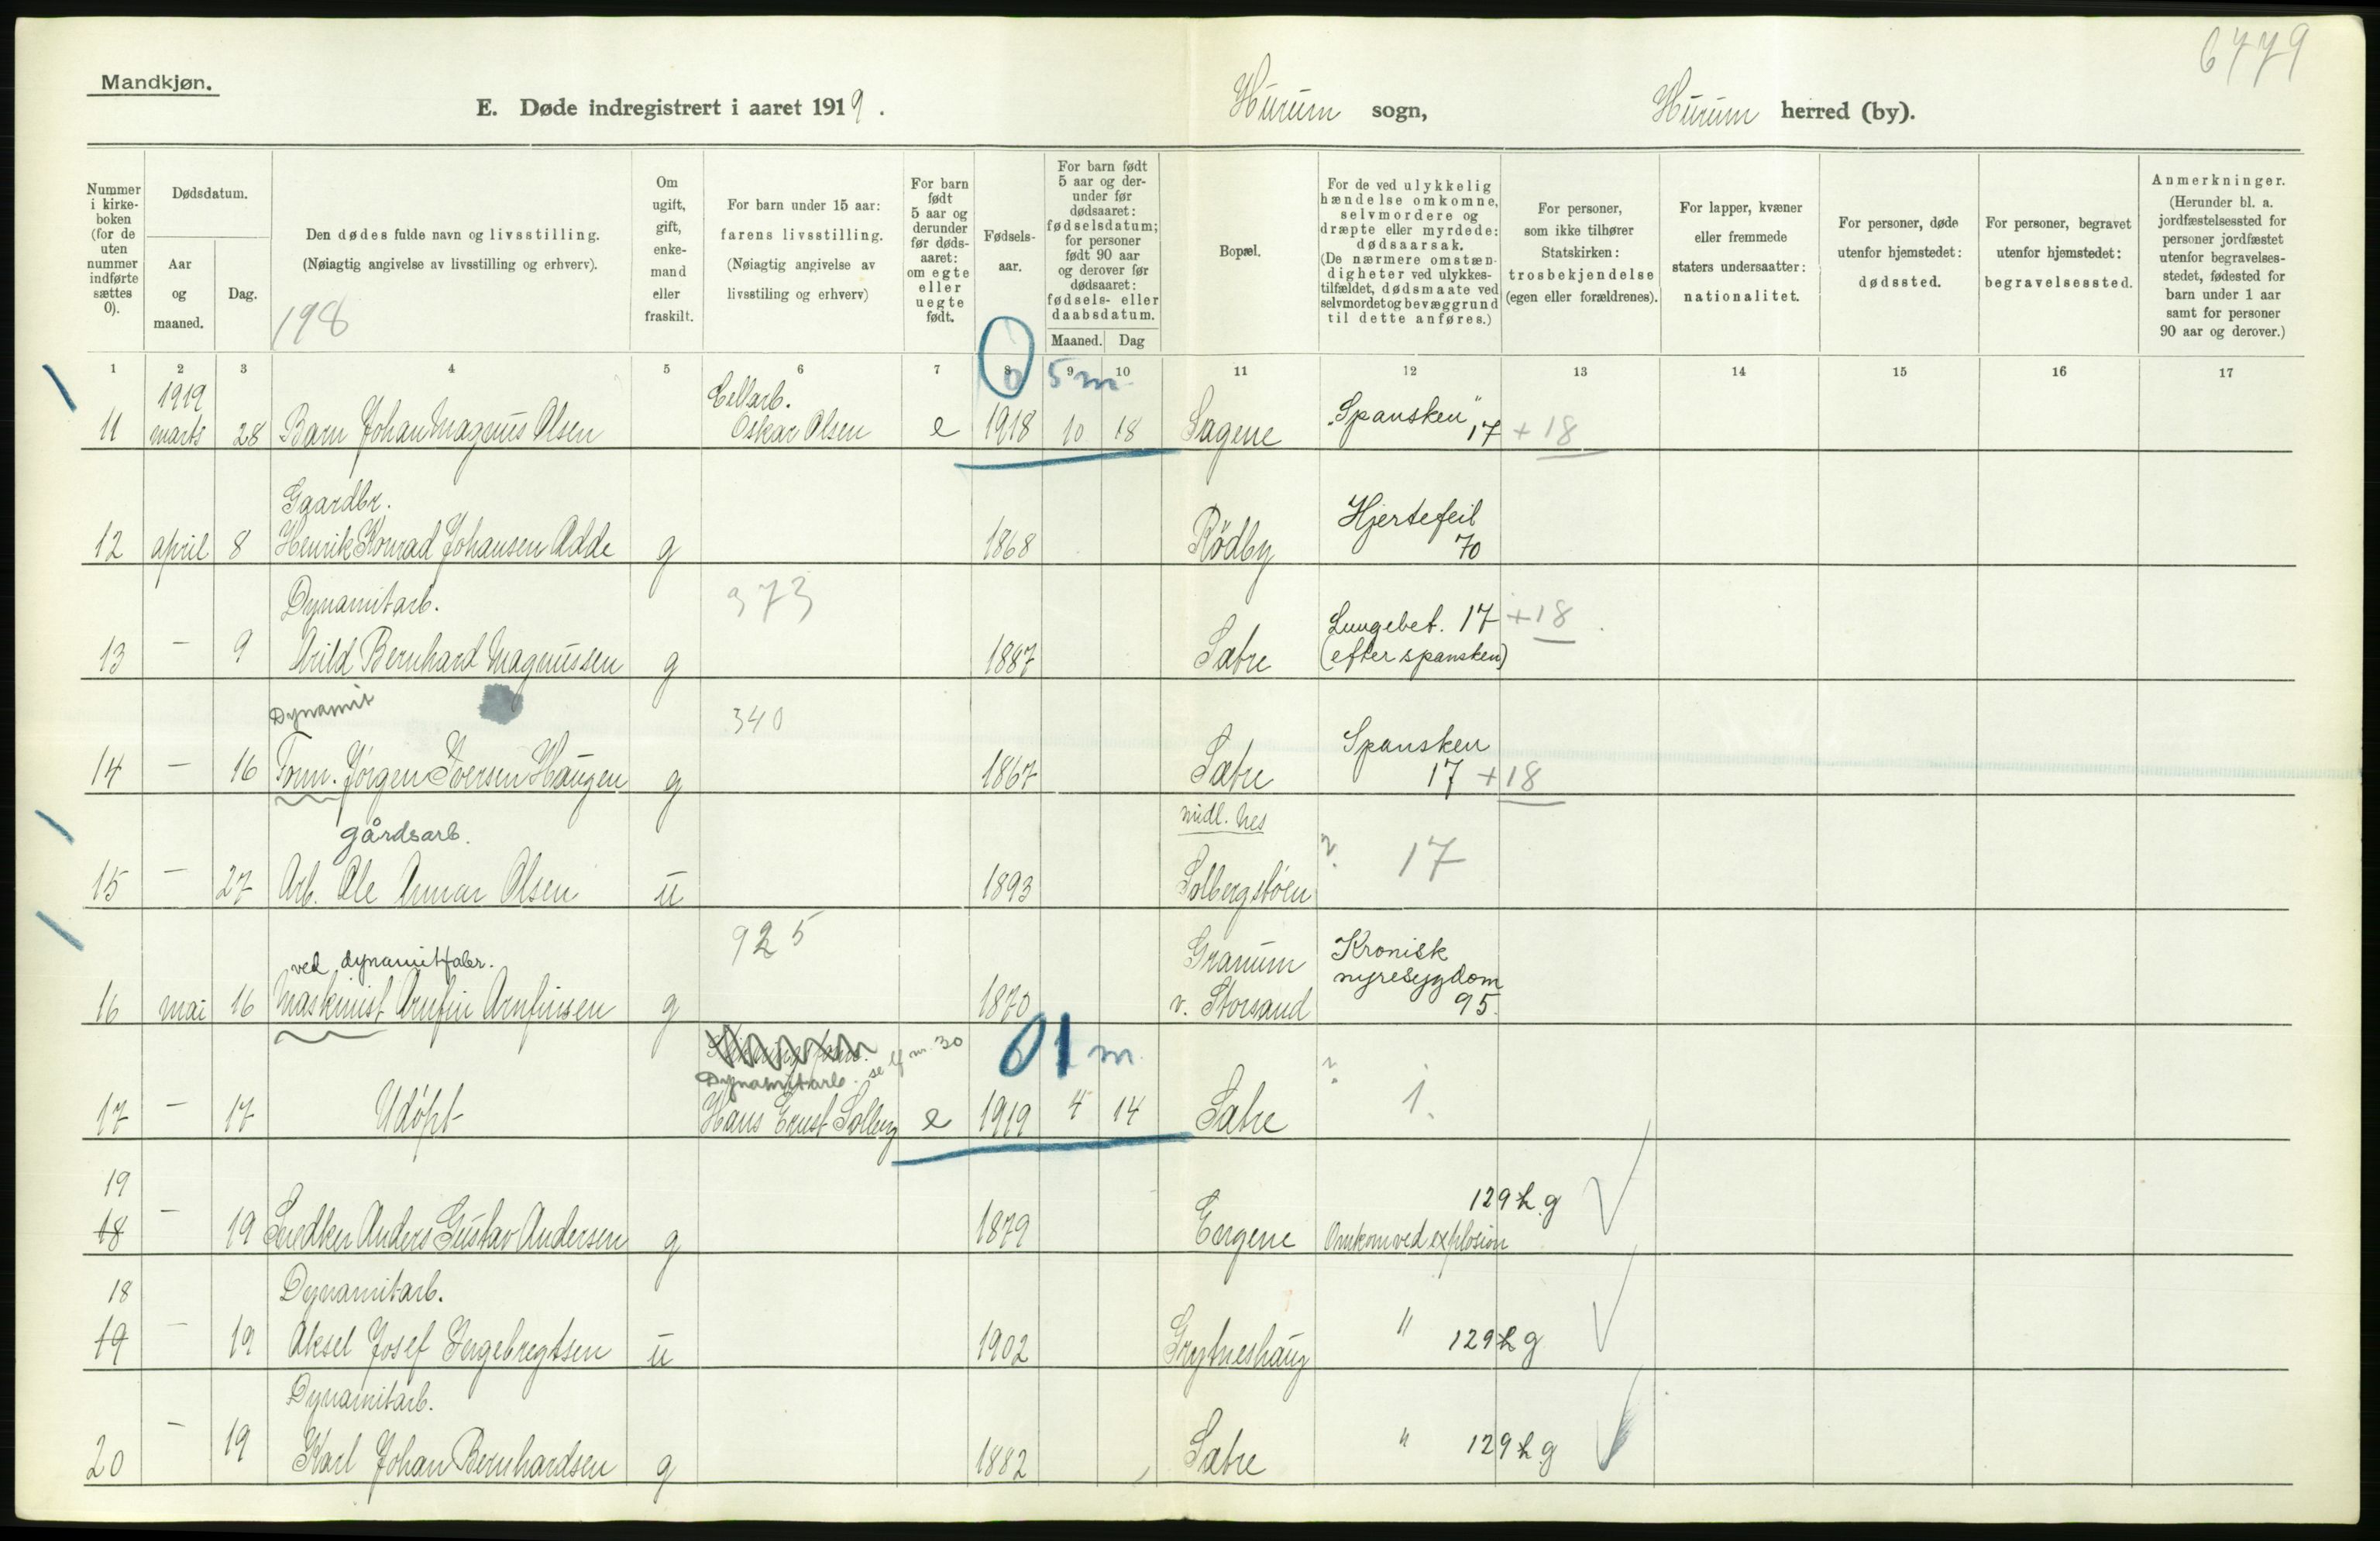 6779
Mandkjøn.
E. Døde indregistrert i aaret 1919.
Hurum sogn,
Hurum herred (by).
Nummer i kirkeboken (for de uten nummer indførte sættes 0).
Dødsdatum.
Aar og maaned.
Dag.
Den dødes fulde navn og livsstilling.
(Nøiagtig angivelse av livsstilling og erhverv).
198
Om ugift, gift, enkemand eller fraskilt.
For barn under 15 aar: farens livsstilling. (Nøiagtig angivelse av livsstiling og erhverv)
For barn født 5 aar og derunder før dødsaaret: om egte eller uegte født.
Fødselsaar.
For barn født 5 aar og derunder før dødsaaret: fødselsdatum; for personer født 90 aar og derover før dødsaaret: fødsels- eller daabsdatum.
Maaned. Dag
Bopæl.
For de ved ulykkelig hændelse omkomne, selvmordere og dræpte eller myrdede: dødsaarsak. (De nærmere omstændigheter ved ulykkestilfældet, dødsmaate ved selvmordet og bevæggrund til dette anføres.)
For personer, som ikke tilhører Statskirken: trosbekjendelse (egen eller forældrenes).
For lapper, kvæner eller fremmede staters undersaatter: nationalitet.
For personer, døde utenfor hjemstedet: dødssted.
For personer, begravet utenfor hjemstedet: begravelsessted.
Anmerkninger. (Herunder bl. a. jordfæstelsessted for personer jordfæstet utenfor begravelsesstedet, fødested for barn under 1 aar samt for personer 90 aar og derover.)
1 2 3 4 5 6 7 8 9 10 11 12 13 14 15 16 17
0 5 m
1919 Cellarb.
11 marts 28 Barn Johan Magnus Olsen Oskar Olsen e 1918 10 18 Sagene "Spansken" 17 + 18
Gaardbr. Hjertefeil
12 april 8 Henrik Konrad Johansen Adde g 1868 Rödby 70
Dynamitarb. 373 Lungebet. 17 + 18
13 - 9 Arild Bernhard Magnussen g 1887 Sætre (efter spansken)
Dynamit 340 Spansken
14 - 16 Form. Jörgen Iversen Haugen g 1867 Sætre 17 + 18
gårdsarb. midl. Nes
15 - 27 Arb. Ole Annar Olsen u 1893 Solbergstöen ? 17
ved dynamitfabr. 925 Granum Kronisk nyresygdom
16 mai 16 Maskinist Arnfin Arnfinsen g 1870 v. Storsand 95.
Dynamitarb. se lf nr. 30 0 1 m
17 - 17 Udöpt Hans Ernst Solberg e 1919 4 14 Sætre ? 1.
19 129 h g
18 - 19 Snedker Anders Gustav Andersen g 1879 Engene Omkom ved explosion
18 Dynamitarb.
19 - 19 Aksel Josef Ingebregtsen u 1902 Grytneshaug " 129 h g
Dynamitarb.
20 - 19 Karl Johan Bernhardsen g 1882 Sætre " 129 h g